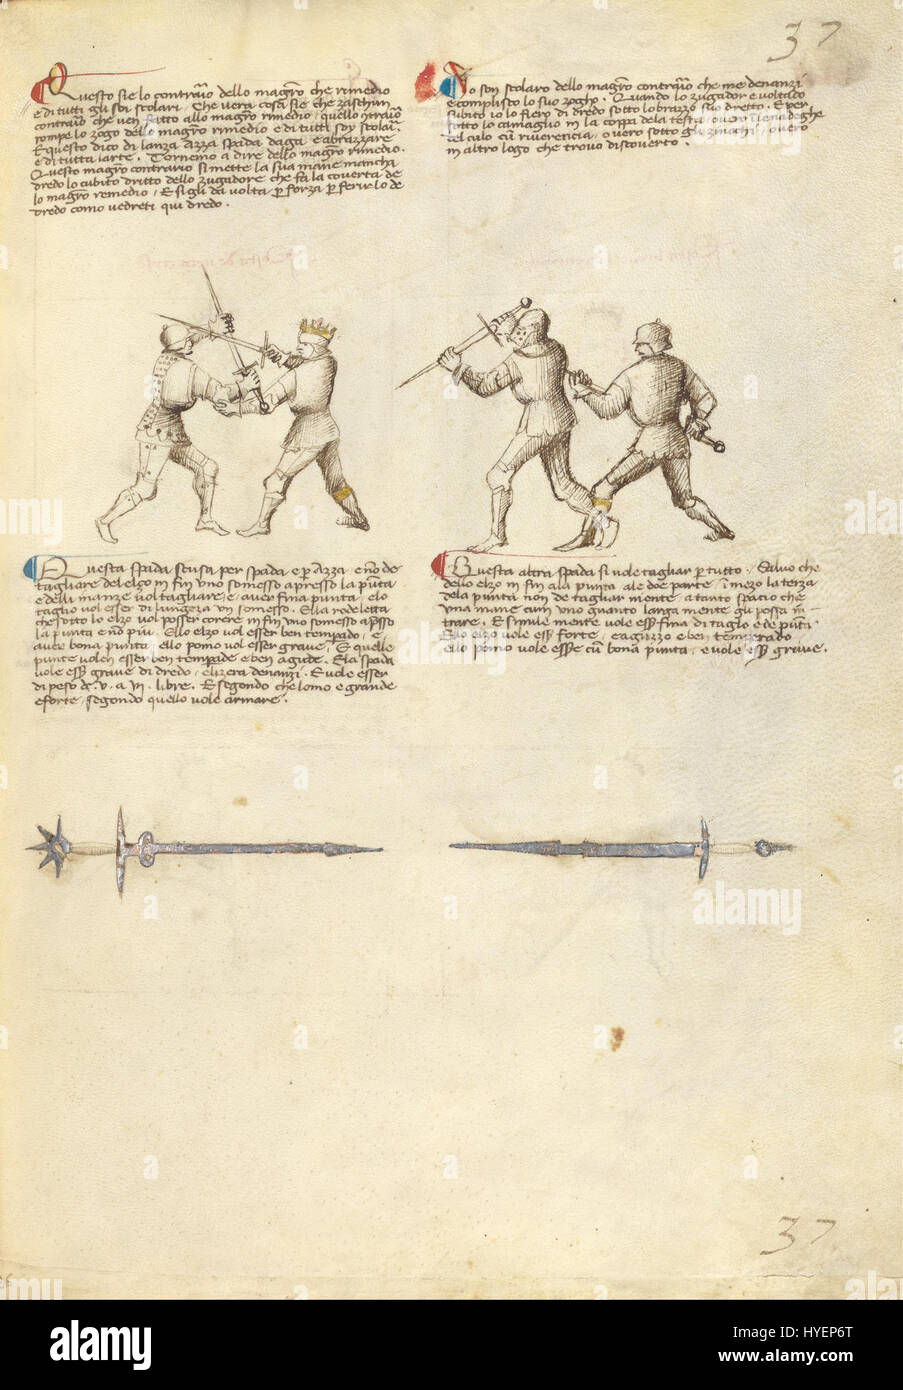 37
Questo sie lo contrario dello magro che remedio
e di tutti gli soi scolari . Che vera cosa sie che zaschun
contrario che ven fatto allo magro rimedio, quello contrario
rompe lo zogo dello magro rimedio e di tutti soy scolari.
E questo dico di lanza Azza spada daga e abrazzare
e di tutta larte . Tornemo a dire dello magro rimedio.
Questo magro contrario si mette la sua mane mancha
dredo lo cubito dritto dello zugadore che fa la coverta de
lo magro remedio, E si gli da volta p forza p ferirlo de
dredo como vedreti qui dredo .
Io son scolaro dello magro contrario che me denanzi
e complisco lo suo zogho . Quando lo zugadore e voltado
subito io lo fiero di dredo sotto lo brazzo suo dretto. E per
sotto lo camaglio in la coppa dela testa, overo in le nadeghe
del culo cum riverencia, overo sotto gli zinochi, overo
in altro logo che trovo discoverto .
Questa spada seusa per spada e p Azza, e no de
tagliare del elço in fin uno somesso apresso la punta
e delli manze vol tagliare, e aver fina punta, elo
taglio vol esser di lungeza un somesso . Ela rodeletta
che sotto lo elzo vol posser corere in fin uno somesso apsso
la punta e no piu . Ello elzo vol esser ben temprado, e
aver bona punta, ello pomo vol esser grave, E quelle
punte voleno esser ben temprade e ben agude . Ela spada
vole ess grave di dredo, elizera denanzi . E vole esser
di peso de .v. a .vi. libre. E segondo che lomo e grande
e forte, segondo quello vole armare .
Questa altra spada si vole tagliar p tutto . Salvo che
dello elzo in fin ala punta ale doe parte, in mezo la terza
dela punta non de tagliar mente a tanto spacio che
una mane cum uno guanto larga mente gli possa in-
trare . E simile mente vole ess fina di taglo e de punta
Elo elzo vole ess forte, e aguzzo e ben temperado
ello pomo vole esse cum bona punta, e vole ess grave .
37
alamy
Image ID: HYEP6T
www.alamy.com